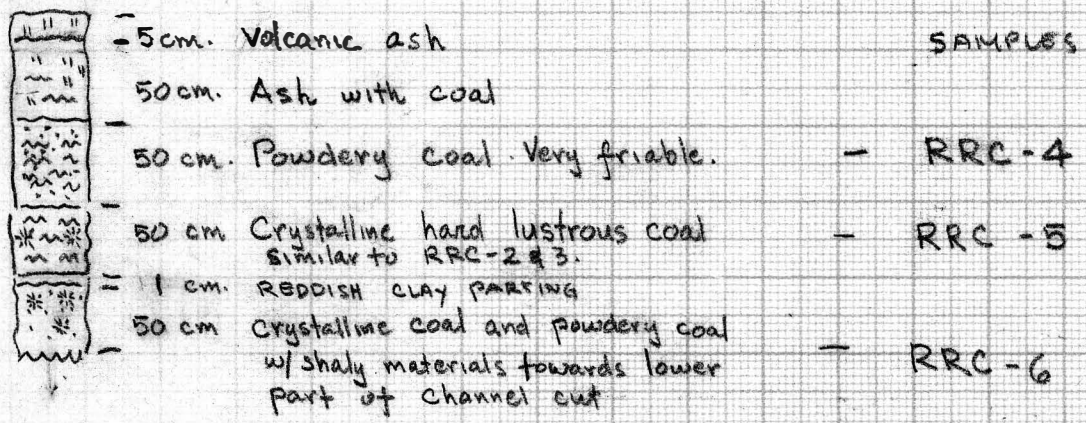 5cm. Volcanic ash SAMPLES
50 cm. Ash with coal
50 cm. Powdery coal. Very friable. - RRC-4
50 cm Crystalline hard lustrous coal - RRC-5
similar to RRC-2 & 3.
1 cm. REDDISH CLAY PARTING
50 cm Crystalline coal and powdery coal
w/ shaly materials towards lower - RRC-6
part of channel cut